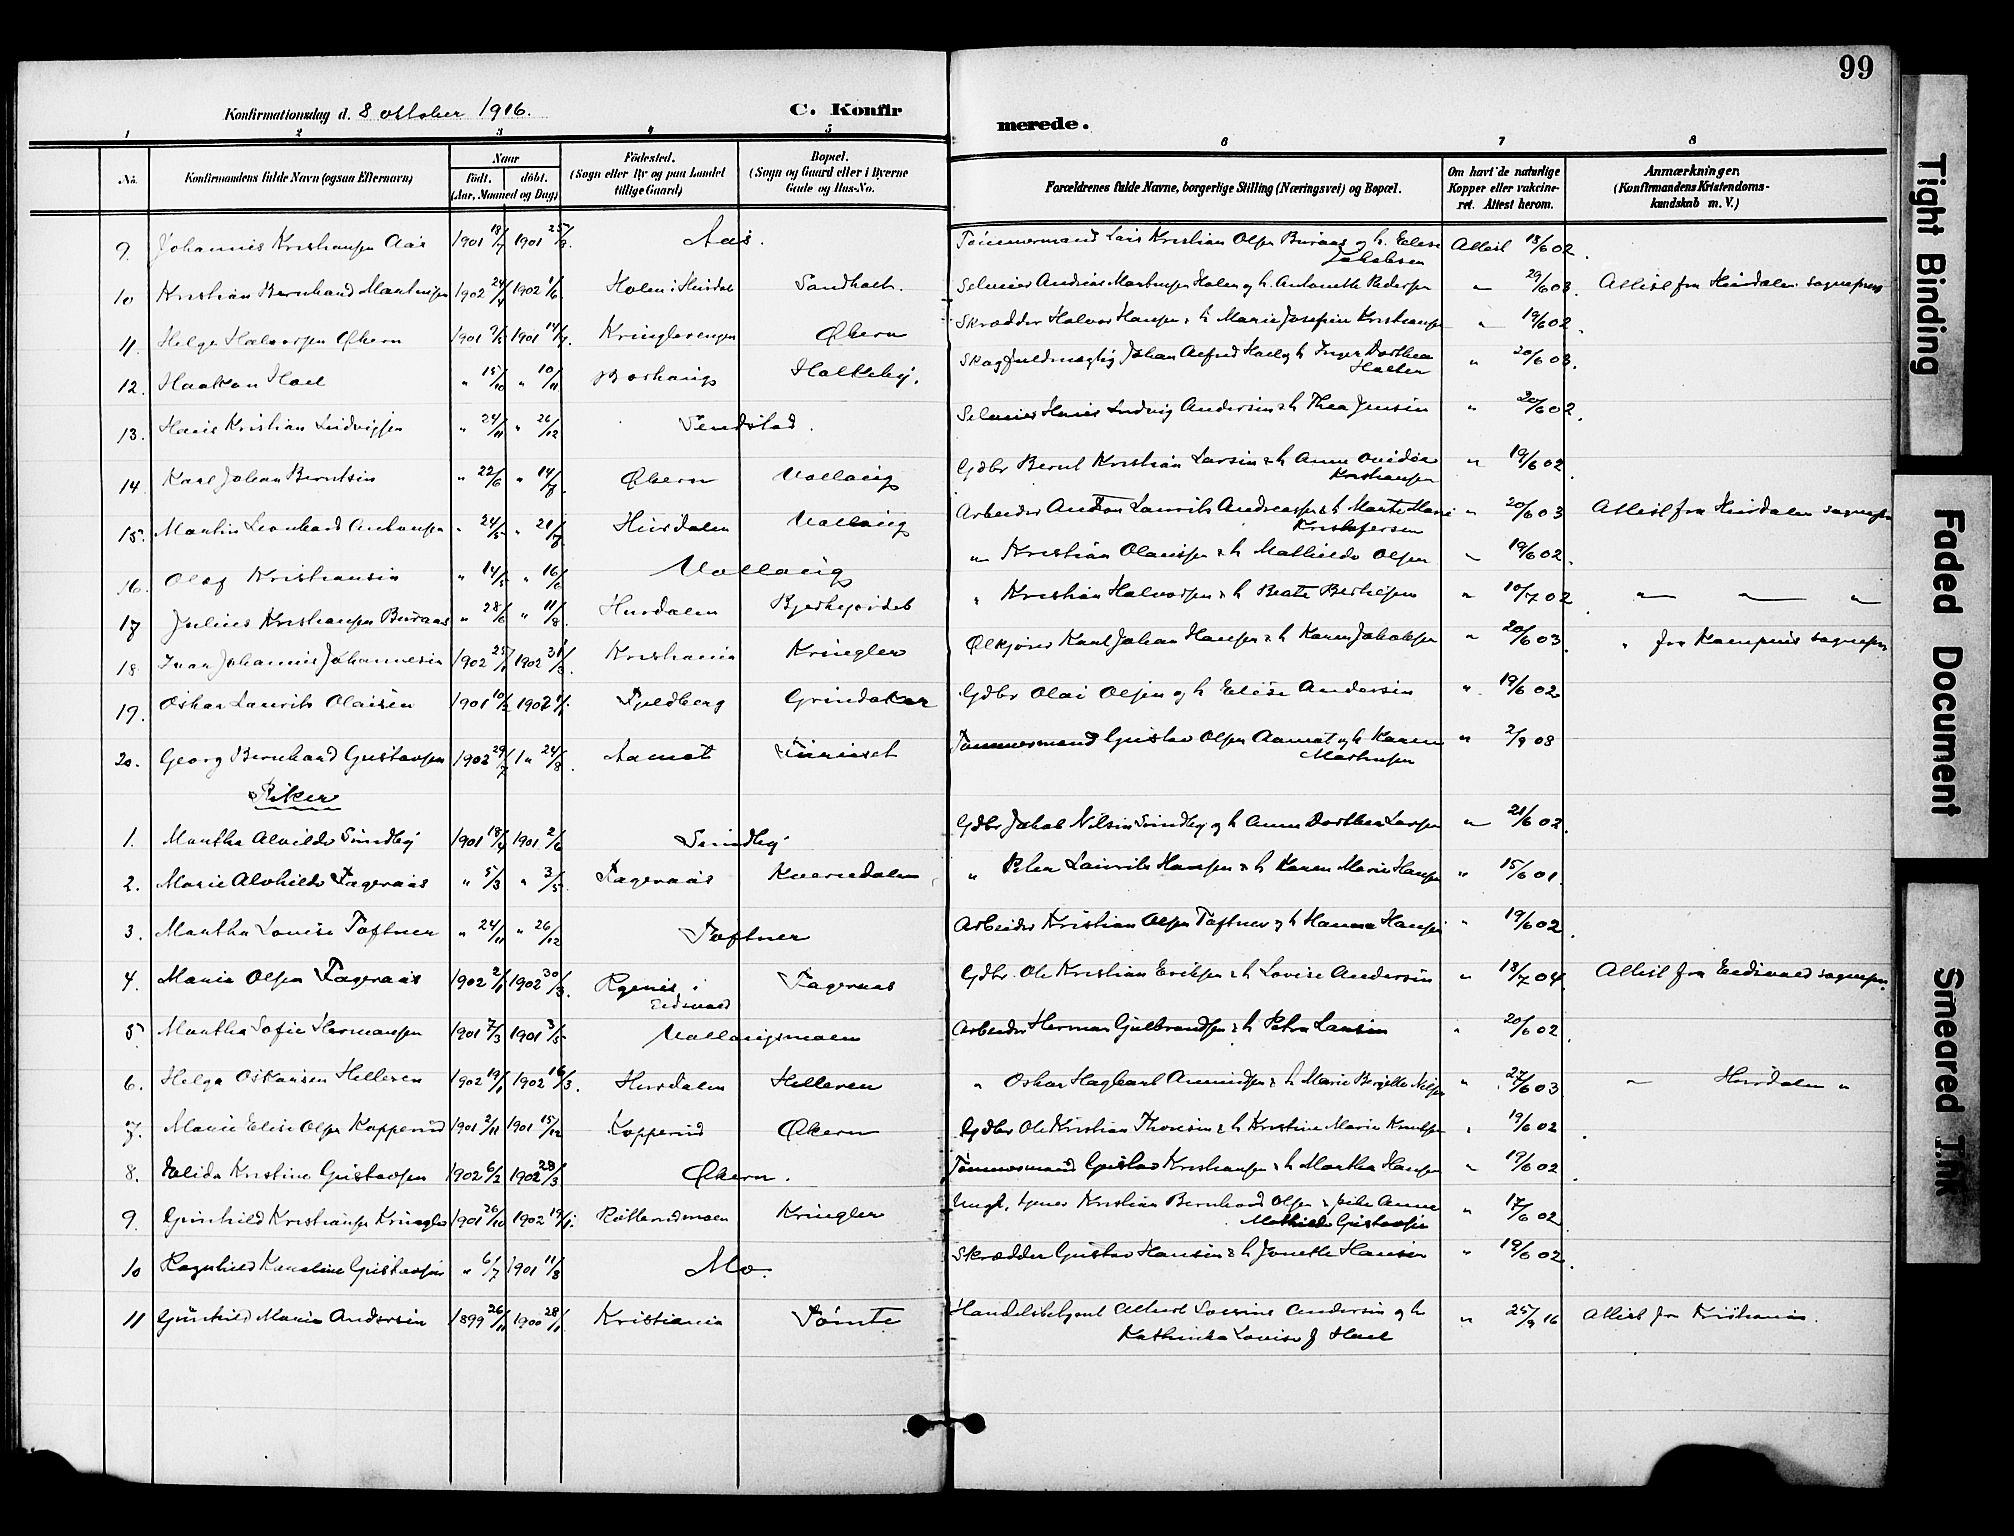 99
Konfirmationsdag d. 8 oktober 1916.
C. Konfirmerede.
1 2 3 4 5 6 7 8
No. Konfirmandens fulde Navn (ogsaa Efternavn) Naar født. døbt. (Aar, Maaned og Dag) Fødested. (Sogn eller By og paa Landet tillige Gaard) Bopæl. (Sogn og Gaard eller i Byerne Gade og Hus-No. Forældrenes fulde Navne, borgerlige Stilling (Næringsvei) og Bopæl. Om havt de naturlige Kopper eller vakcineret. Attest herom. Anmærkninger. (Konfirmandens Kristendomskundskab m. V.)
9. Johannes Kristiansen Aas 1901 18/7 1901 25/8. Aas. Tømmermand Lars Kristian Olsen Buraas og h. Elise Jakobsen Attest 18/6 02.
10 Kristian Bernhard Martinsen 1902 24/4 1902 1/6. Holen i Hurdal Sandholt. Selveier Andreas Martinsen Holen og h. Antonette Pedersen " 29/6 03. Attest fra Hurdalen sognepres
11. Helge Halvorsen Økern 1901 1901 14/7. Kringlerengen Økern Skrædder Halvor Hansen & h Marie Josefine Kristiansen " 19/6 02.
12. Haakon Hoel " 15/10 " 10/11 Holteby. Skogfuldmægtig Johan Alfred Hoel og h Inger Dorthea Holter " 20/6 03.
13. Hans Kristian Ludvigsen " 24/11 " 26/12 Tendstad. Selveier Hans Ludvig Andersen & h Thea Jensen " 20/6 02.
14. Karl Johan Berntsen " 22/6 " 14/7. Økern Vollaug Gdbr Bernt Kristian Larsen & h Anne Ovidia Kristiansen " 19/6 02.
15. Martin Leonhard Antonsen " 24/5 " 21/7. Hurdalen Vollaug Arbeider Anton Laurits Andreassen & h Marte Marie Kristofersen " 20/6 03 Attest fra Hurdalen sognepr
16. Olaf Kristiansen " 14/5 " 16/6 Vollaug " Kristian Olaussen & h Mathilde Olsen " 19/6 02.
17 Julius Kristiansen Buraas " 28/6 " 11/8. Hurdalen Bjerkejordet " Kristian Halvorsen & h Beate Bertilsen " 10/7 02. " " "
18. Ivar Johannes Johannesen 1902 25/1 1902 31/3. Kristiania Kringler Ølkjører Karl Johan Hansen & h Karen Jakobsen " 20/6 03. " fra Kampens sognepr
19. Oskar Laurits Olaisen 1901 1902 Fjeldberg Grindaker Gdbr Olai Olsen og h Elise Andersen " 19/6 02
20. Georg Bernhard Gustavsen 1902 29/7 1" 24/8. Aamot Tømmermand Gustav Olsen Aamot og h Karen Martinsen " 2/9 03
Piker
1. Martha Alvilde Sundby 1901 18/4 1901 2/6 Sundby Gdbr Jakob Nilsen Sundby og h Anne Dorthea Larsen " 21/6 02.
2. Marie Alvhilde Fageraas " 5/3 " 3/5. Fageraas Kverndalen " Peter Laurits Hansen & h Karen Marie Hansen " 15/6 01.
3. Martha Louise Toftner " 24/11 " 26/12 Toftner Arbeider Kristian Olsen Toftner og h Hanna Hansen " 19/6 02.
4. Maria Olsen Fageraas 1902 2/1 1902 30/3. Rognes i Eidsvold Fageraas Gdbr. Ole Kristian Eriksen & h Lovise Andersen " 18/7 04. Attest fra Eidsvold sognepr.
5 Martha Sofie Hermansen 1901 7/3 1901 3/5 Vollaugsmoen Arbeider Herman Gulbrandsen & h Petra Larsen " 20/6 02.
6. Helga Oskarsen Helleren 1902 19/1 1902 16/3. Hurdalen Helleren " Oskar Hagbart Amundsen & h Marie Bergitte Nilsen " 27/6 03 " Hurdalen "
7. Marie Elise Olsen Kopperud 1901 2/11 1901 15/12 Kopperud Økern Gdbr Ole Kristian Thoresen & h Kristine Marie Knutsen " 19/6 02.
8. Valida Kristine Gustavsen 1902 6/2 1902 28/3 Økern. Tømmermand Gustav Kristiansen & h Martha Hansen " 19/6 02.
9. Gunhild Kristiansen Kringler 1901 26/10 1902 19/1. Kringler Ungk, tjener Kristian Bernhard Olsen & pike Anne Mathilde Gustavsen " 17/6 02.
10 Ragnhild Karoline Gustavsen " 6/7 1901 11/8 Mo. Skrædder Gustav Hansen & h Jonette Hansen " 19/6 02.
11 Gunhild Maria Andersen 1899 26/11 1900 28/1. Kristiania Tømte Handelsbetjent Albert Laurins Andersen og h Kathinka Lovise f Hoel " 25/9 16 Attest fra Kristiania.
Tight Binding
Faded Document
Smeared Ink